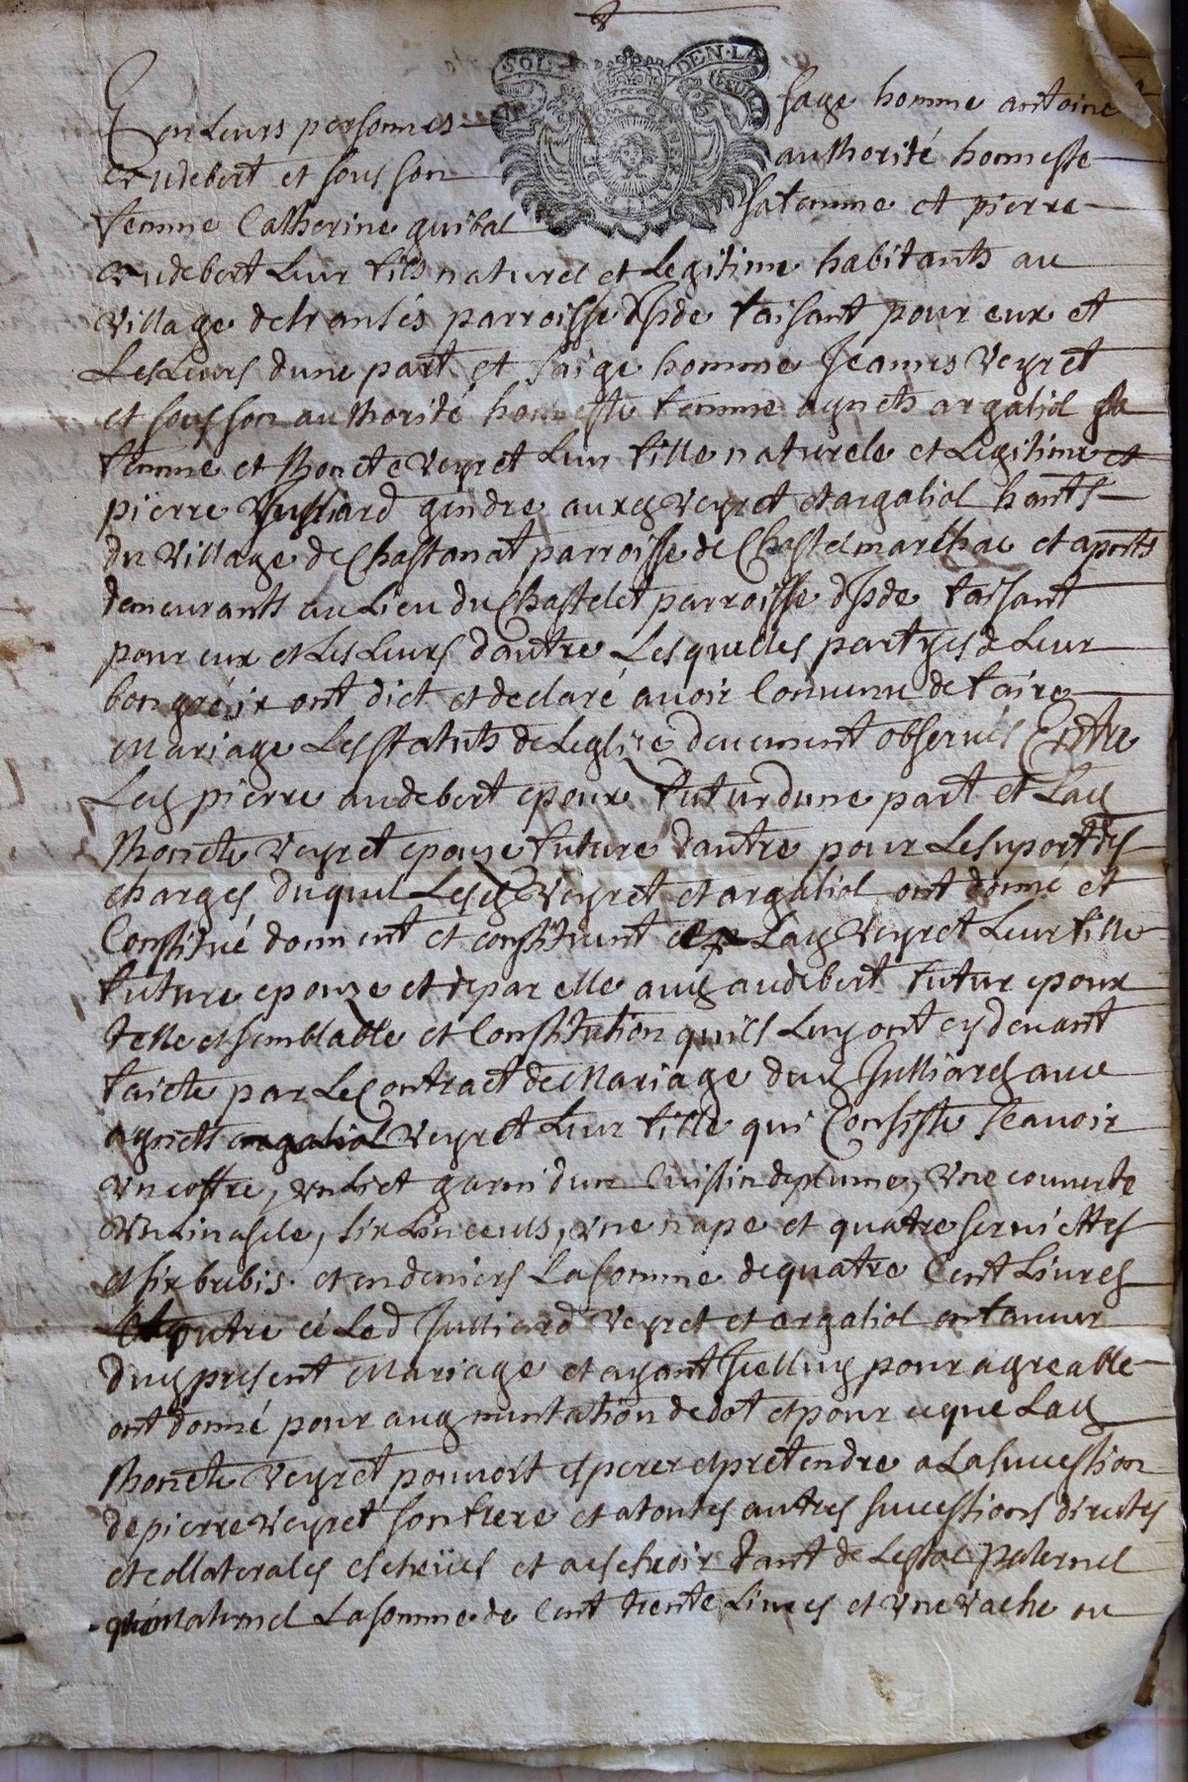 SOL DEN LA
En Leurs personnes sage homme antoine
audebert et sous son authorité honneste
femme Catherine guibal sa femme et pierre
audebert Leur fils naturel et Legitime habitants au
village de parroisse dIsde faisant pour eux et
Les Leurs dune part et saige homme Jeames Veyret
et sous son authorité honneste femme agnets argaliol sa
femme et Thonete Veyret Leur fille naturele et Legitime et
pierre Julliard gendre auxd Veyret et argaliol hants
du village de Chastanat parroisse de Chastelmarlhac et apnts
demeurants au Lieu du Chastelet parroisse dIsde faisant
pour eux et Les Leurs dautre Lesquelles partyes de Leur
bon gré ont dict et declaré auoir Conuenu de faire
Mariage Les statuts de Leglize deuement obserués Entre
Led pierre audebert epoux futur dune part et Lad
Thonete Veyret epouze future dautre pour Le suport des
charges duquel Lesd Veyret et argaliol ont donné et
Constitué donnent et constituent a Lad Veyret Leur fille
future epouze et de par elle aud audebert futur epoux
telle et semblable et Constitution quils Luy ont cy deuant
faicte par Le Contract de Mariage dud Julliard auec
agnets argaliol Veyret Leur fille qui Consiste scauoir
Vn coffre, vn Lict garni dun Cuissin de plume, Vne couuerte
Vn Linasele, six Linceuls, vne nape et quatre seruiettes
et six brebis. et en deniers La somme de quatre Cent Liures
Et outre ce Led Julliard Veyret et argaliol en faueur
dud present Mariage et ayant Icelluy pour agreable
ont donné pour augmentation de dot et pour ce que Lad
Thonete Veyret pouuoit esperer et pretendre a La succession
de pierre Veyret son frere et a toutes autres successions directes
et collaterales escheües et a escheoir tant de Lestoc paternel
que maternel La somme de Cent trente Liures et Vne Vache ou